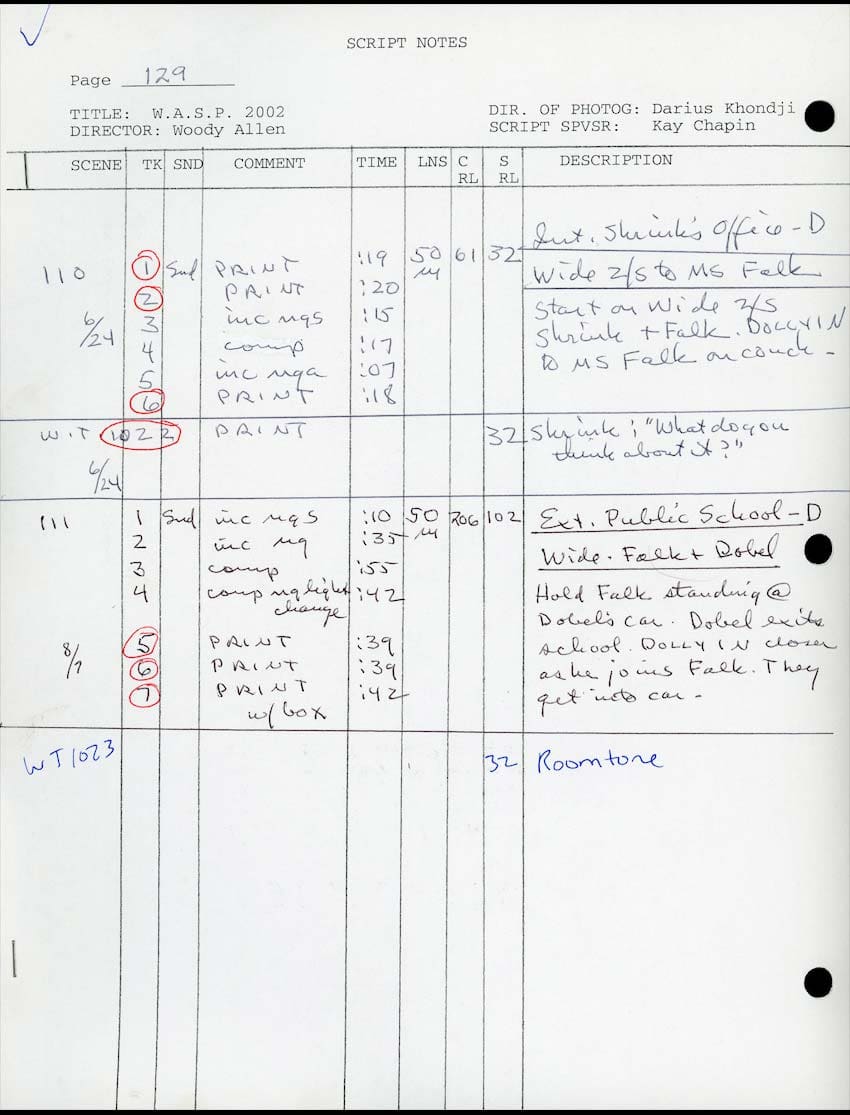 SCRIPT NOTES
Page 129
TITLE: W.A.S.P. 2002 DIR. OF PHOTOG: Darius Khondji
DIRECTOR: Woody Allen SCRIPT SPVSR: Kay Chapin
SCENE TK SND COMMENT TIME LNS C RL S RL DESCRIPTION
Int. Shrink's Office - D
110 1 Snd PRINT :19 50 M 61 32 Wide 2/S to MS Falk
2 PRINT :20 Start on Wide 2/S
6/24 3 inc ngs :15 Shrink + Falk. DOLLY IN
4 comp :17 to MS Falk on couch -
5 inc nga :07
6 PRINT :18
W.T 1022 PRINT 32 Shrink; "What do you
6/24 think about it?"
111 1 Snd inc ngs :10 50 M 206 102 Ext. Public School - D
2 inc ng :35 Wide. Falk + Dobel
3 comp :55
4 comp ng light change :42 Hold Falk standing @
Dobel's car. Dobel exits
8/7 5 PRINT :39 school. DOLLY IN closer
6 PRINT :39 as he joins Falk. They
7 PRINT :42 get into car -
w/ box
WT 1023 32 Roomtone